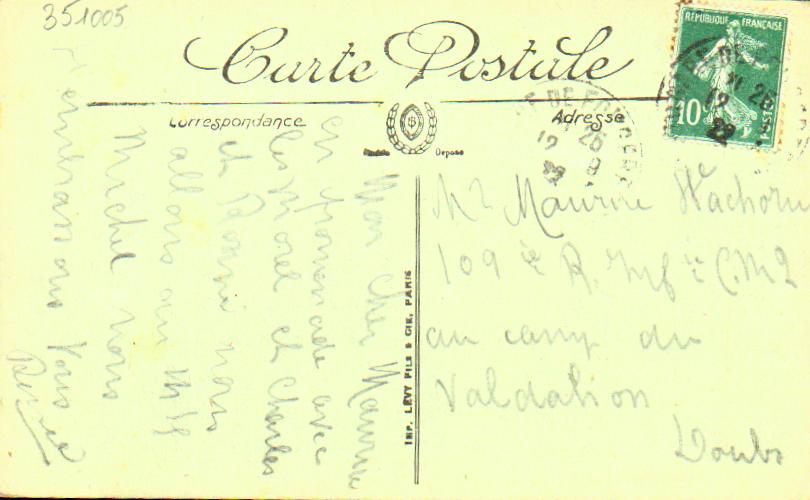 351005
Carte Postale
Correspondance
Adresse
Modèle Déposé
RÉPUBLIQUE FRANÇAISE
10
POSTES
IMP. LÉVY FILS & CIE, PARIS
Mon cher Maurice
en promenade avec
les Morel et Charles
et nous
allons au Mt
Michel nous
embrassons tous
Mr Maurice
109 e R. Inf ie C.M2
au camp du
Valdahon
Doubs